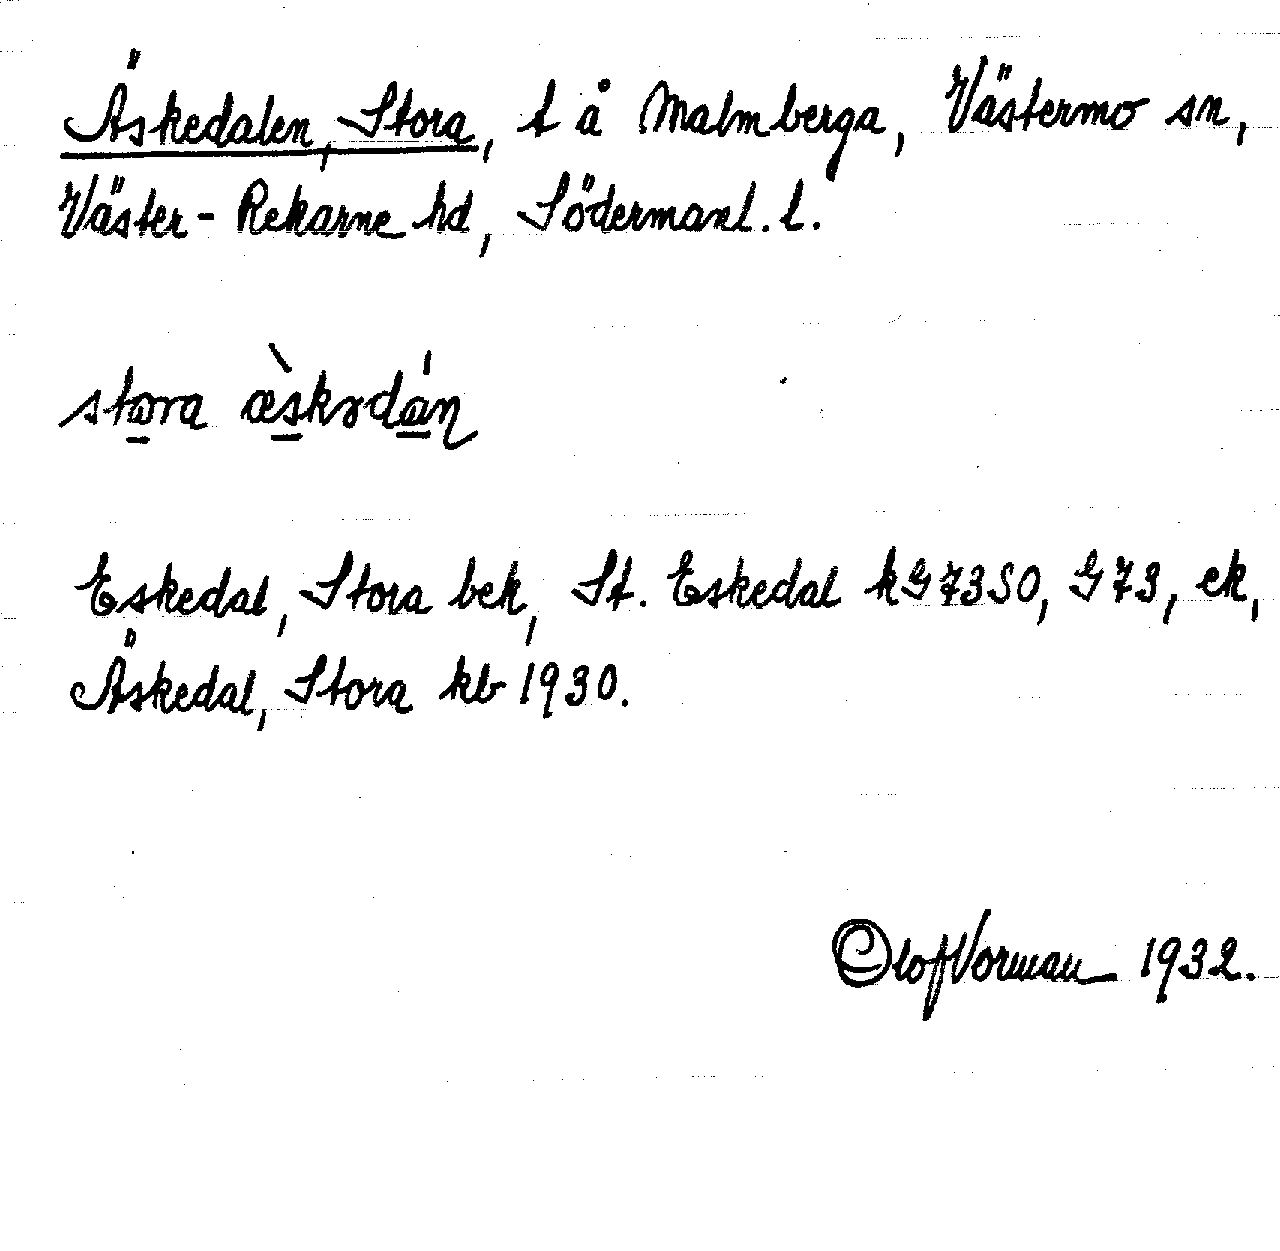 Äskedalen, Stora, t å Malmberga, Västermo sn,
Väster-Rekarne hd, Södermanl. l.
stora æ̀skɤdán
Eskedal, Stora bek, St. Eskedal kG 73SO, G73, ek,
Äskedal, Stora kb 1930.
Olof Vorman 1932.